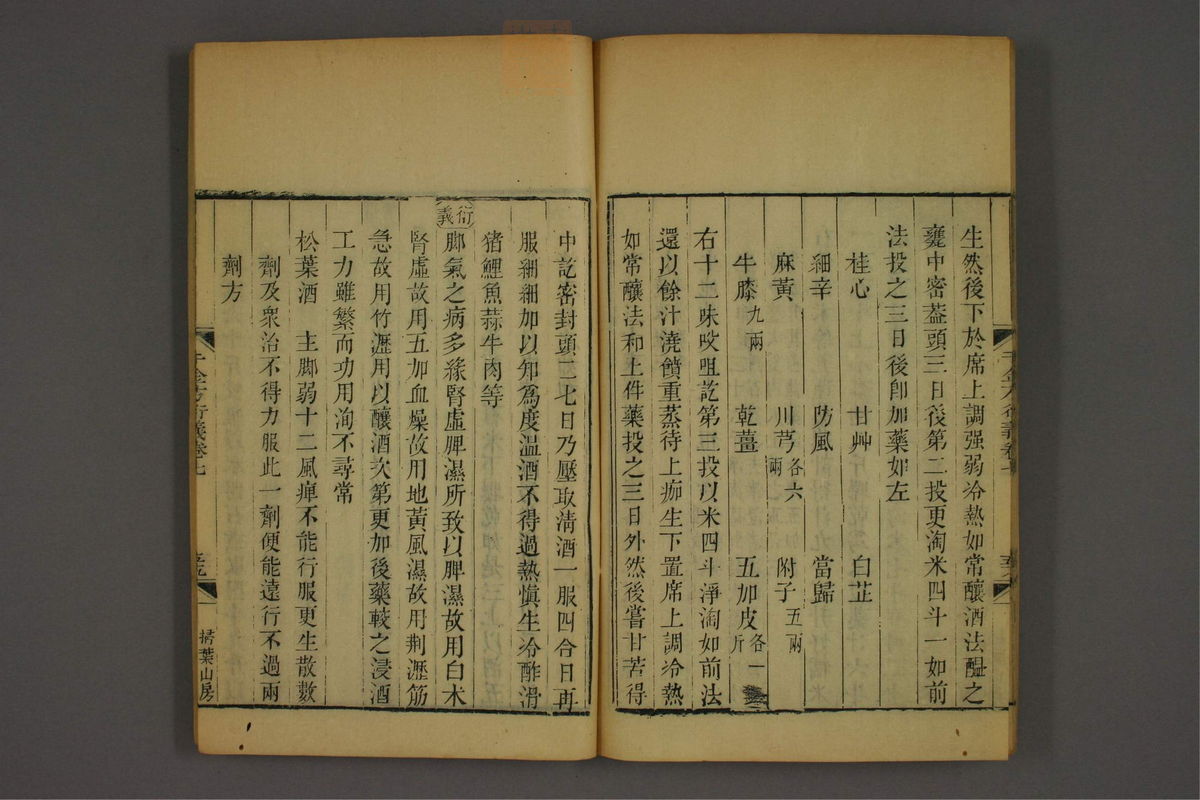 生然後下於席上調强弱冷熱如常釀酒法醖之
甕中密葢頭三日後第二投更淘米四斗一如前
法投之三日後卽加藥如左
桂心 甘艸 白芷
細辛 防風 當歸
麻黃 川芎各六兩 附子五兩
牛膝九兩 乾薑 五加皮各一斤
右十二味㕮咀訖第三投以米四斗淨淘如前法
還以餘汁澆饙重蒸待上痂生下置席上調冷熱
如常釀法和上件藥投之三日外然後嘗甘苦得
中訖密封頭二七日乃壓取清酒一服四合日再
服細細加以知爲度溫酒不得過熱愼生冷酢滑
猪鯉魚蒜牛肉等
衍義
脚氣之病多緣腎虛脾濕所致以脾濕故用白术
腎虛故用五加血燥故用地黃風濕故用荆瀝筋
急故用竹瀝用以釀酒次第更加後藥較之浸酒
工力雖繁而功用洵不尋常
松葉酒 主脚弱十二風痺不能行服更生散數
劑及衆治不得力服此一劑便能遠行不過兩
劑方
千金方衍義卷七
掃葉山房